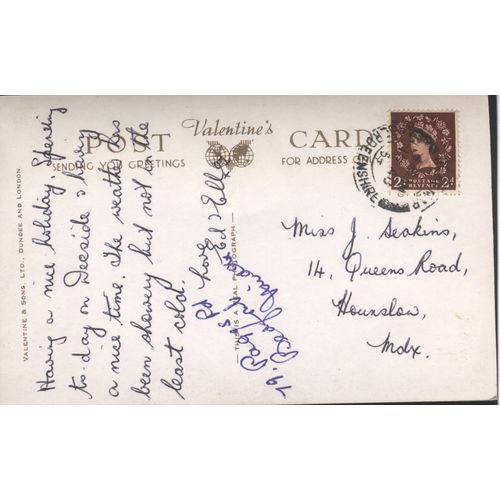 Valentine's
POST CARD
SENDING YOU GREETINGS
FOR ADDRESS
VALENTINE & SONS, LTD., DUNDEE AND LONDON.
Having a nice holiday. Spending
to-day on Deeside & having
a nice time. The weather has
been showery but not in the
least cold.
Love
Ed & Ella
THIS IS A REAL PHOTOGRAPH
Miss J. Seakins,
14, Queens Road,
Hounslow,
Mdx.
2D 2D
POSTAGE
REVENUE